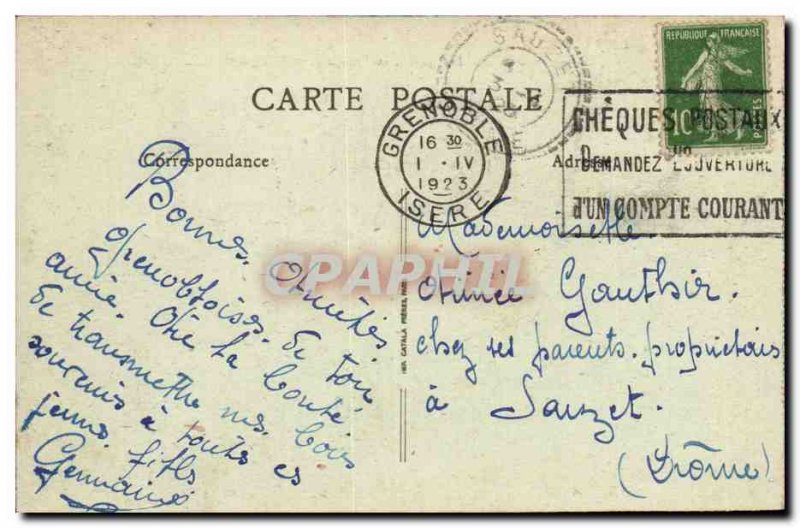 CARTE POSTALE
Correspondance
Adresse
SAUZET
REPUBLIQUE FRANÇAISE
10
POSTES
GRENOBLE
16 30
1 · IV
1923
ISERE
CHÈQUES POSTAUX
DEMANDEZ L'OUVERTURE
d'UN COMPTE COURANT
Bonnes Amitiés
grenobloises de ton
amie. Aie la bonté
de transmettre mes bons
souvenirs à toutes ces
jeunes filles
Germaine
Mademoiselle
Aimée Gauthier
chez ses parents. propriétaires
à Sauzet.
(Drôme)
IMP. CATALA FRÈRES, PARIS
CPAPHIL